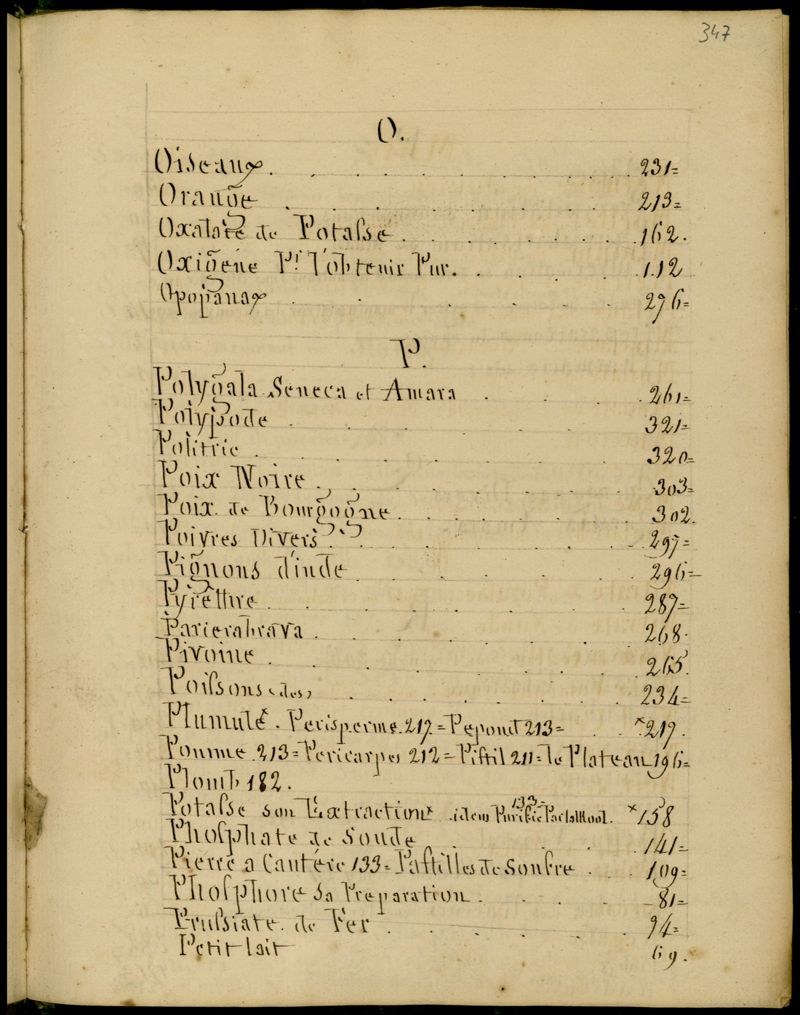 347
O.
Oiseaux. 231=
Orange 213=
Oxalate de Potasse. 162.
Oxigene Pr. l'obtenir Pur. 112
Opopanax 276=
P.
Polygala Seneca et Amara 261=
Polypode 321=
Politric 320=
Poix Noire. 303=
Poix de Bourgogne. 302.
Poivres Divers. 297=
Pignons d'inde 296=
Pyrèthre. 287=
Parierabrava. 268.
Pivoine. 265.
Poissons (des) 234=
Plumule. Perisperme. 217= Pepond 213= *217.
Pomme. 213= Pericarpes 212= Pistil 211= le Plateau 196=
Plomb 182.
Potasse son Extraction* idem Purifiée Par lalkool. 133= *158
Phosphate de Soude 141=
Pierre a Cautére 133= Pastilles de Soufre. 109=
Phosphore Sa Préparation. 81=
Prussiate de Fer. 94=
Petit lait 69.